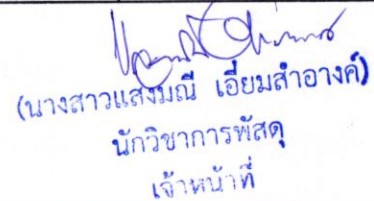 (นางสาวแสงมณี เอี่ยมสำอางค์)
นักวิชาการพัสดุ
เจ้าหน้าที่